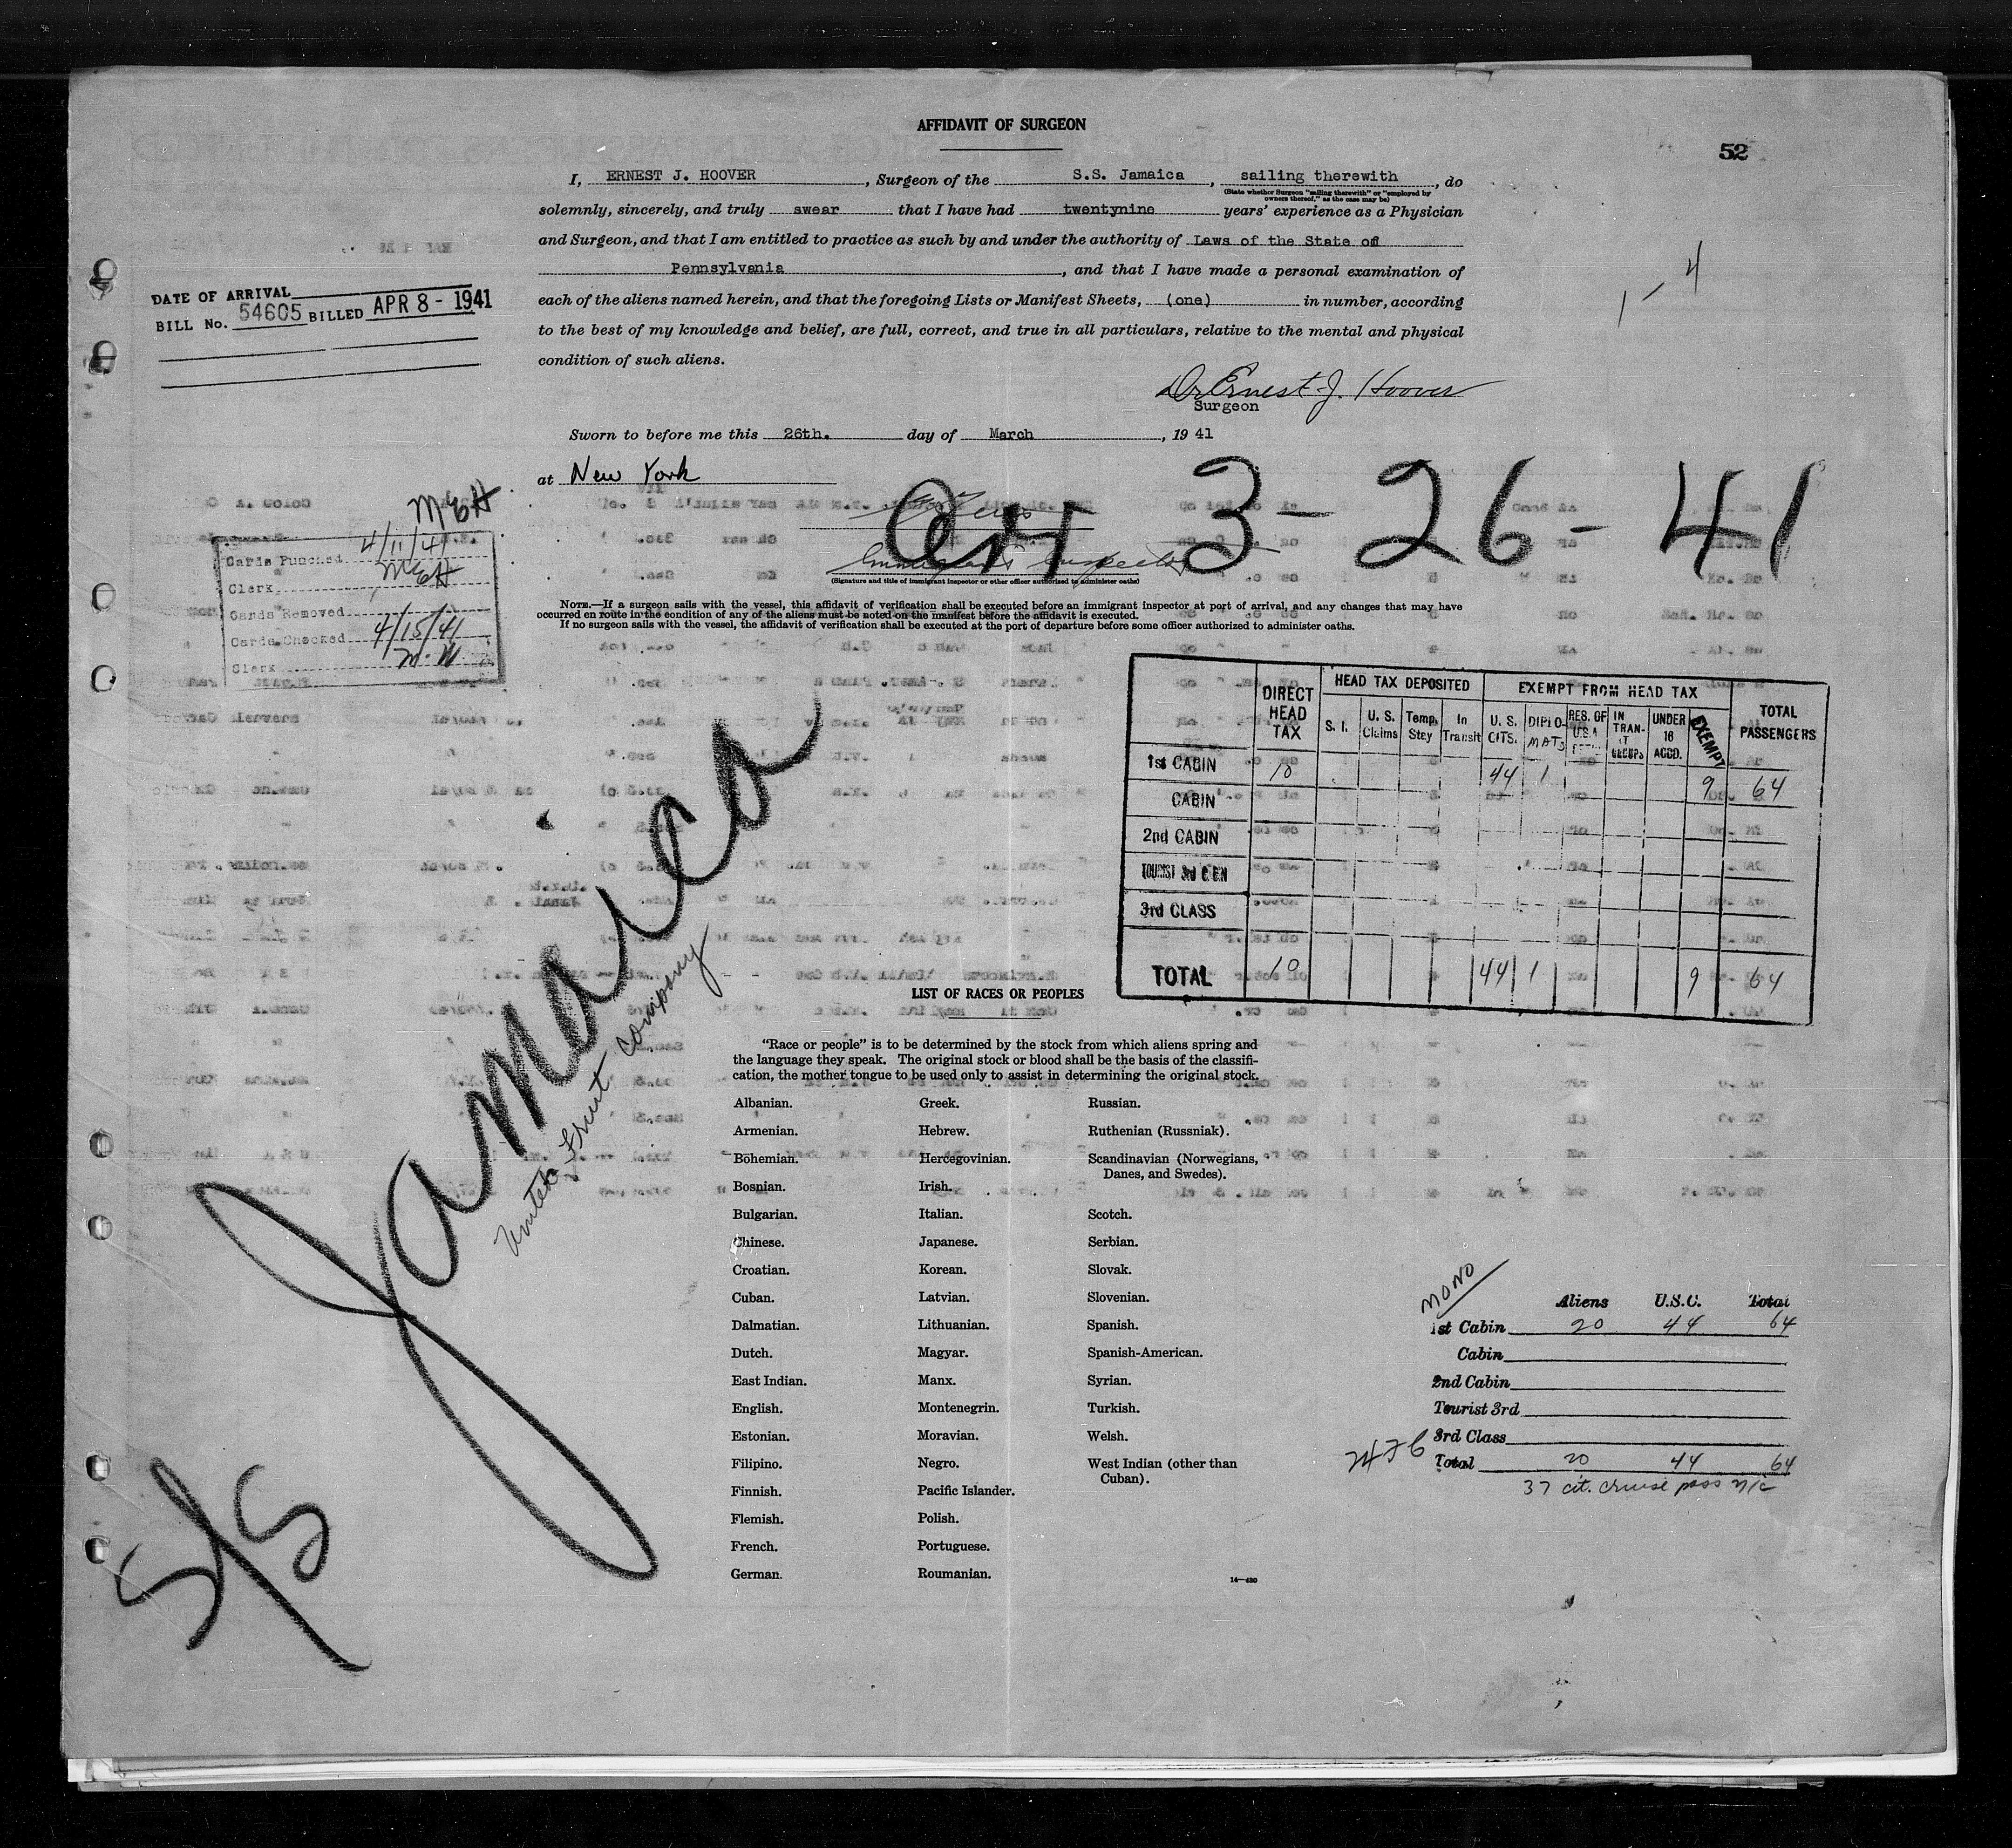 AFFIDAVIT OF SURGEON
52
I, ERNEST J. HOOVER, Surgeon of the S.S. Jamaica, sailing therewith, do
(State whether Surgeon "sailing therewith" or "employed by
owners thereof," as the case may be)
solemnly, sincerely, and truly swear that I have had twentynine years' experience as a Physician
and Surgeon, and that I am entitled to practice as such by and under the authority of Laws of the State of
Pennsylvania, and that I have made a personal examination of
each of the aliens named herein, and that the foregoing Lists or Manifest Sheets, (one) in number, according
to the best of my knowledge and belief, are full, correct, and true in all particulars, relative to the mental and physical
condition of such aliens.
1 - 4
DATE OF ARRIVAL
BILL No. 54605 BILLED APR 8 - 1941
Dr Ernest J. Hoover
Surgeon
Sworn to before me this 26th. day of March, 19 41
at New York
3-26-41
Immigrant Inspector
(Signature and title of immigrant inspector or other officer authorized to administer oaths)
MEH
Cards Punched 4/11/41
Clerk MEH
Cards Removed
Cards Checked 4/15/41
Clerk M.W.
NOTE.—If a surgeon sails with the vessel, this affidavit of verification shall be executed before an immigrant inspector at port of arrival, and any changes that may have
occurred en route in the condition of any of the aliens must be noted on the manifest before the affidavit is executed.
If no surgeon sails with the vessel, the affidavit of verification shall be executed at the port of departure before some officer authorized to administer oaths.
DIRECT HEAD TAX HEAD TAX DEPOSITED EXEMPT FROM HEAD TAX TOTAL PASSENGERS
S. I. U. S. Claims Temp. Stay In Transit U. S. CITS. DIPLOMATS RES. OF USA IN TRAN-T GROUPS UNDER 16 ACCD. EXEMPT
1st CABIN 10 44 1 9 64
CABIN
2nd CABIN
TOURIST 3rd
3rd CLASS
TOTAL 10 44 1 9 64
S/S Jamaica
United Fruit Company
LIST OF RACES OR PEOPLES
"Race or people" is to be determined by the stock from which aliens spring and
the language they speak. The original stock or blood shall be the basis of the classifi-
cation, the mother tongue to be used only to assist in determining the original stock.
Albanian. Greek. Russian.
Armenian. Hebrew. Ruthenian (Russniak).
Bohemian. Hercegovinian. Scandinavian (Norwegians,
Danes, and Swedes).
Bosnian. Irish.
Bulgarian. Italian. Scotch.
Chinese. Japanese. Serbian.
Croatian. Korean. Slovak.
Cuban. Latvian. Slovenian.
Dalmatian. Lithuanian. Spanish.
Dutch. Magyar. Spanish-American.
East Indian. Manx. Syrian.
English. Montenegrin. Turkish.
Estonian. Moravian. Welsh.
Filipino. Negro. West Indian (other than
Cuban).
Finnish. Pacific Islander.
Flemish. Polish.
French. Portuguese.
German. Roumanian.
14—430
MONO
Aliens U.S.C. Total
1st Cabin 20 44 64
Cabin
2nd Cabin
Tourist 3rd
3rd Class
Total 20 44 64
37 cit. cruise pass n/c